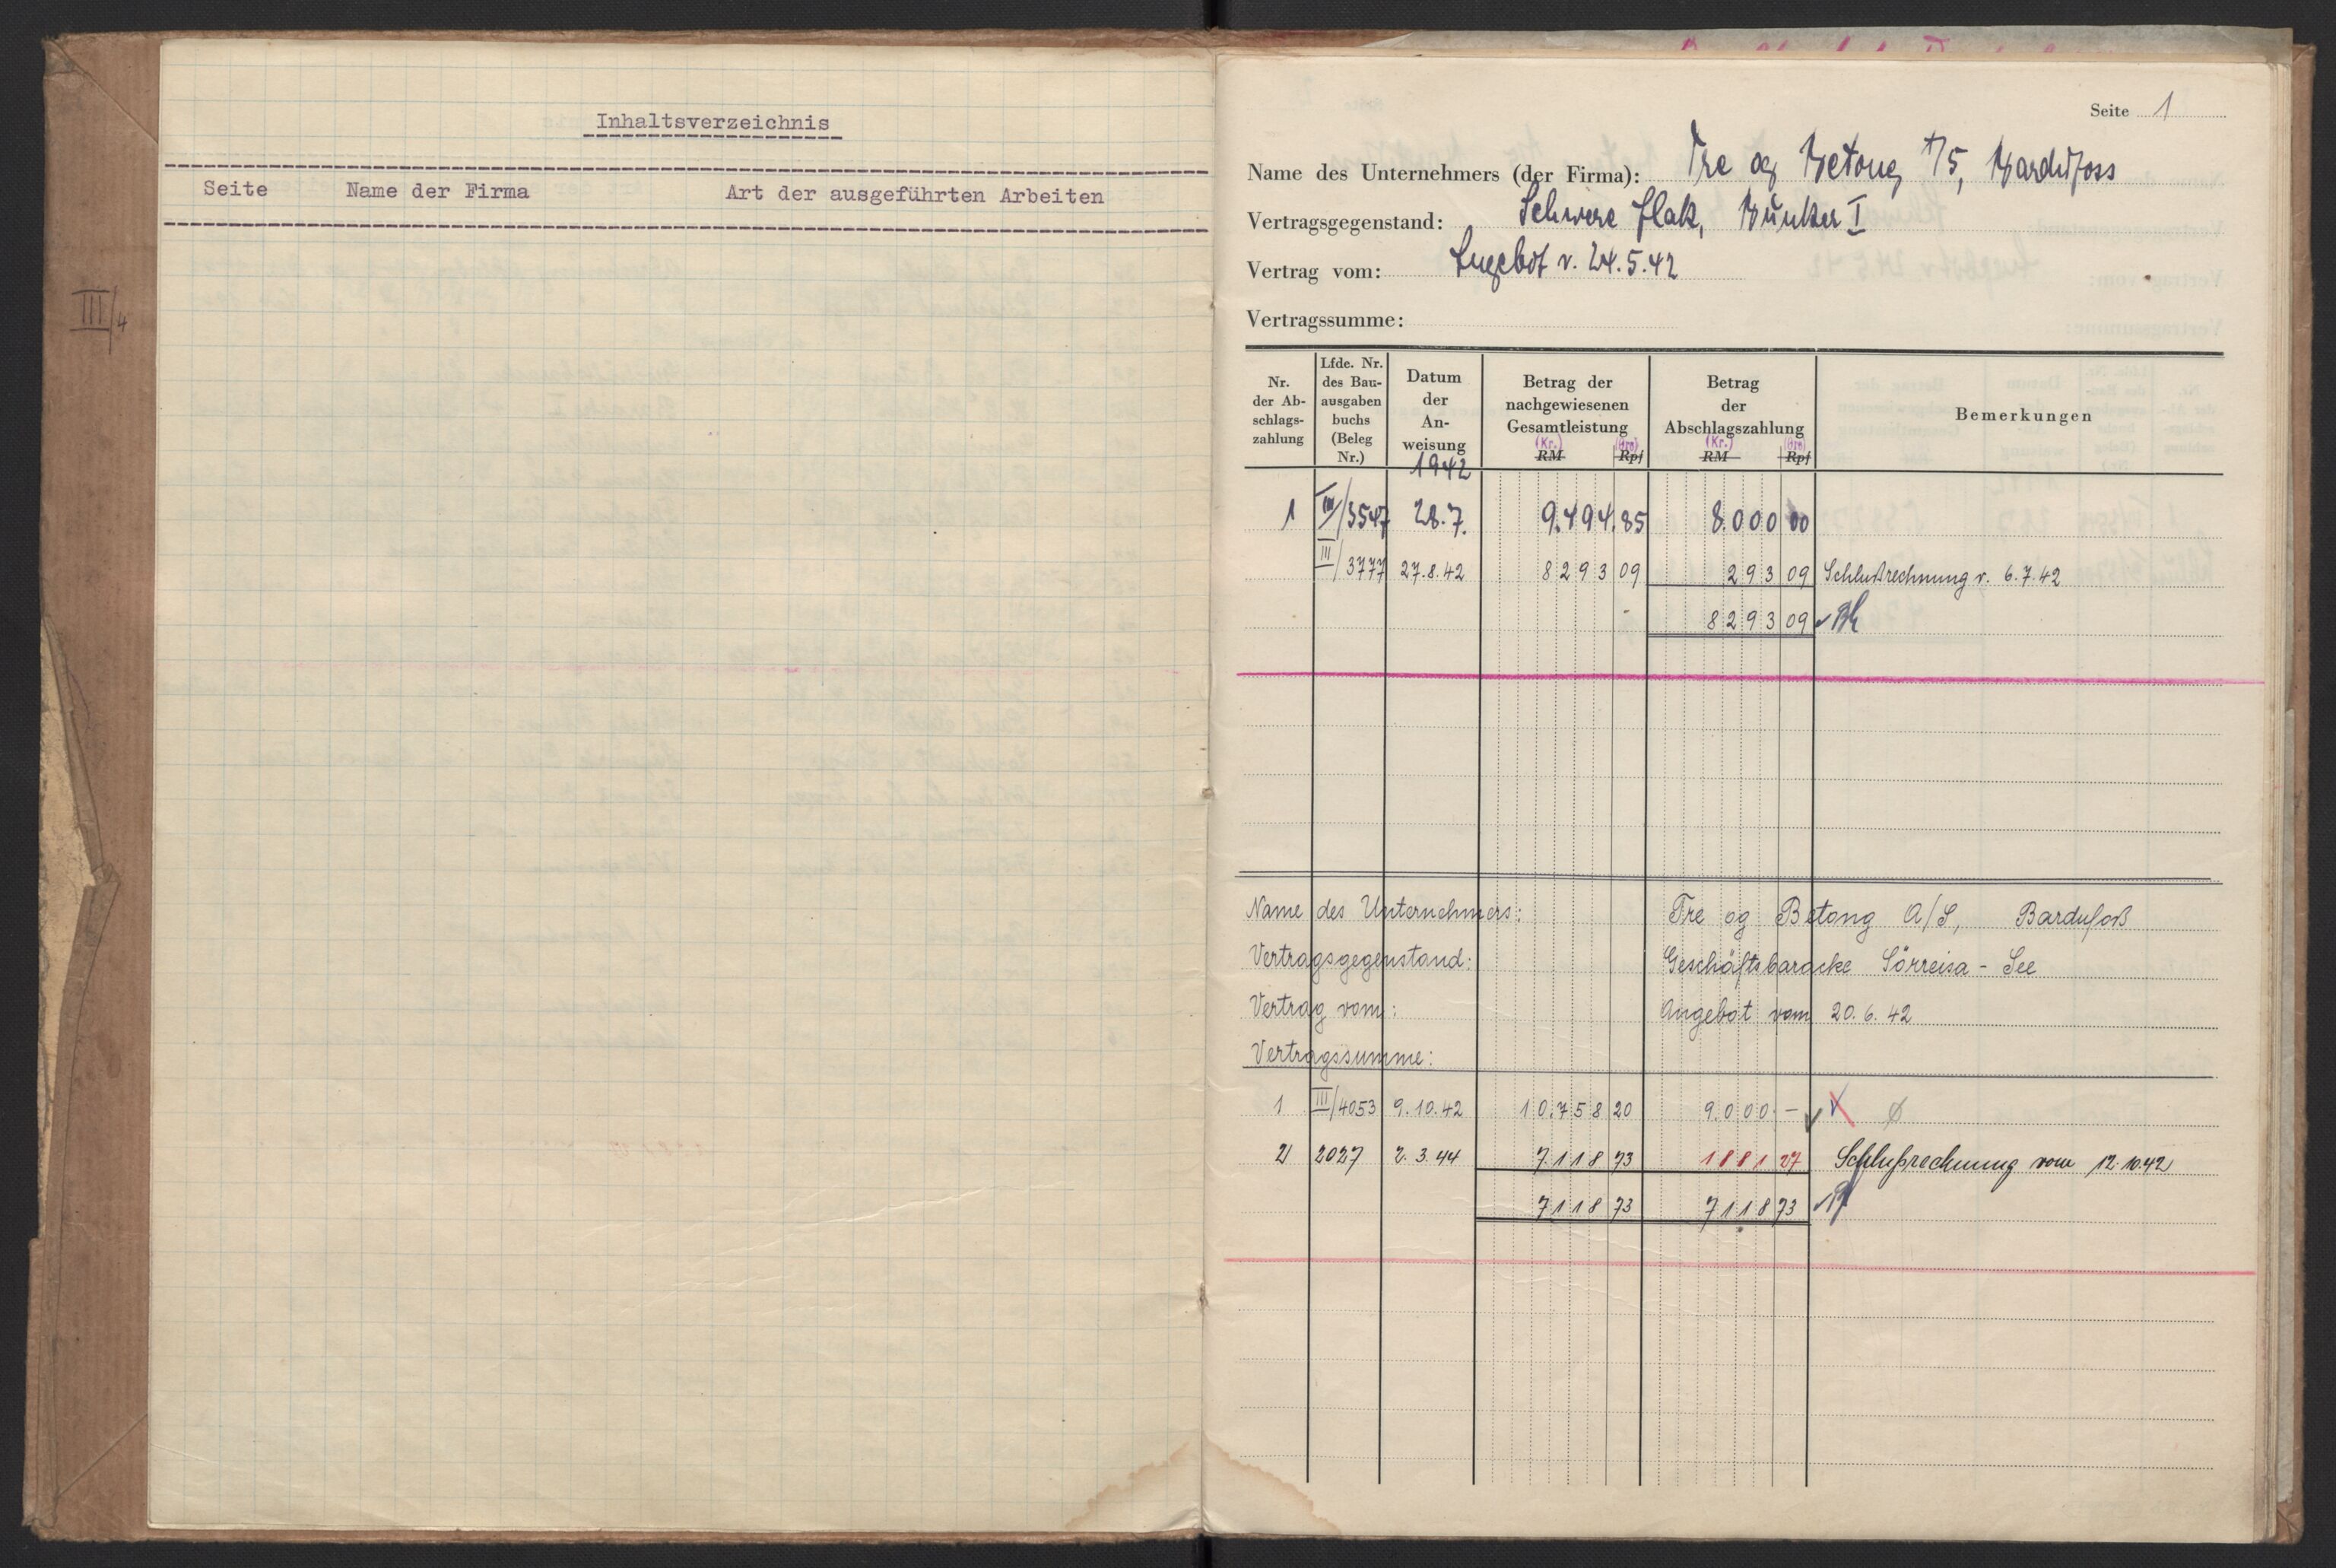 III/4
Inhaltsverzeichnis
Seite Name der Firma Art der ausgeführten Arbeiten
Seite 1
Name des Unternehmers (der Firma): Tre og Betong A/S, Bardufoss
Vertragsgegenstand: Schwere Flak, Bunker I
Vertrag vom: Angebot v. 24.5.42
Vertragssumme:
Nr. der Abschlagszahlung
Lfde. Nr. des Bauausgabenbuchs (Beleg Nr.)
Datum der Anweisung
Betrag der nachgewiesenen Gesamtleistung (Kr.) RM (Öre) Rpf
Betrag der Abschlagszahlung (Kr.) RM (Öre) Rpf
Bemerkungen
1942
1 III/3547 28.7. 9.494.85 8.000 00
III/3777 27.8.42 8293 09 293 09 Schlußrechnung v. 6.7.42
8293 09
Name des Unternehmers: Tre og Betong A/S, Bardufoß
Vertragsgegenstand: Geschäftsbaracke Sörreisa - See
Vertrag vom: Angebot vom 20.6.42
Vertragssumme:
1 III/4053 9.10.42 10.758 20 9.000 -
2 2027 2.3.44 7118 73 1881 27 Schlußrechnung vom 12.10.42
7118 73 7118 73